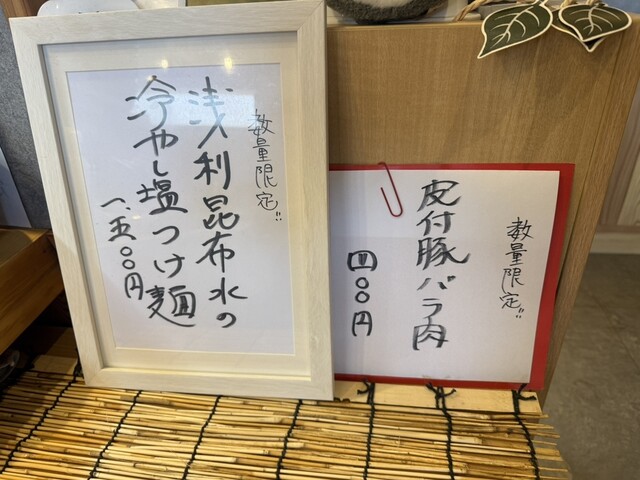 数量限定!!
浅利昆布水の
冷やし塩つけ麺
一、五〇〇円
数量限定!!
皮付豚バラ肉
四〇〇円